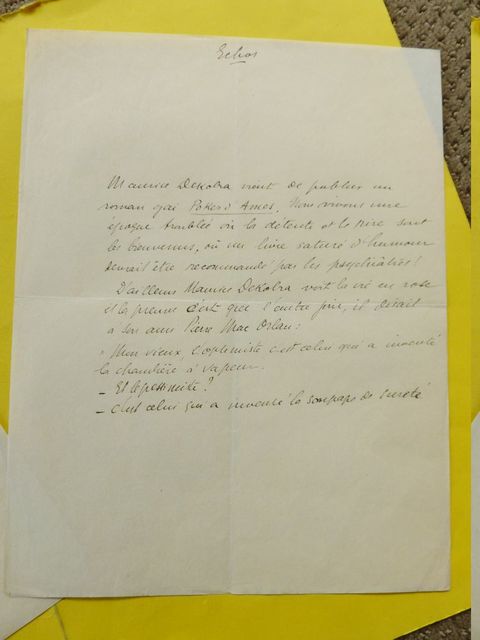 Echos
Maurice Dekobra vient de publier un
roman gai Poker d'Ames. Nous vivons une
époque troublée où la détente et le rire sont
les bienvenus, où un livre saturé d'humour
devrait être recommandé par les psychiâtres!
D'ailleurs Maurice Dekobra voit la vie en rose
et la preuve c'est que l'autre jour, il disait
à son ami Pierre Mac Orlan:
" Mon vieux, l'optimiste c'est celui qui a inventé
la chaudière à vapeur.
- Et le pessimiste?
- C'est celui qui a inventé la soupape de sureté